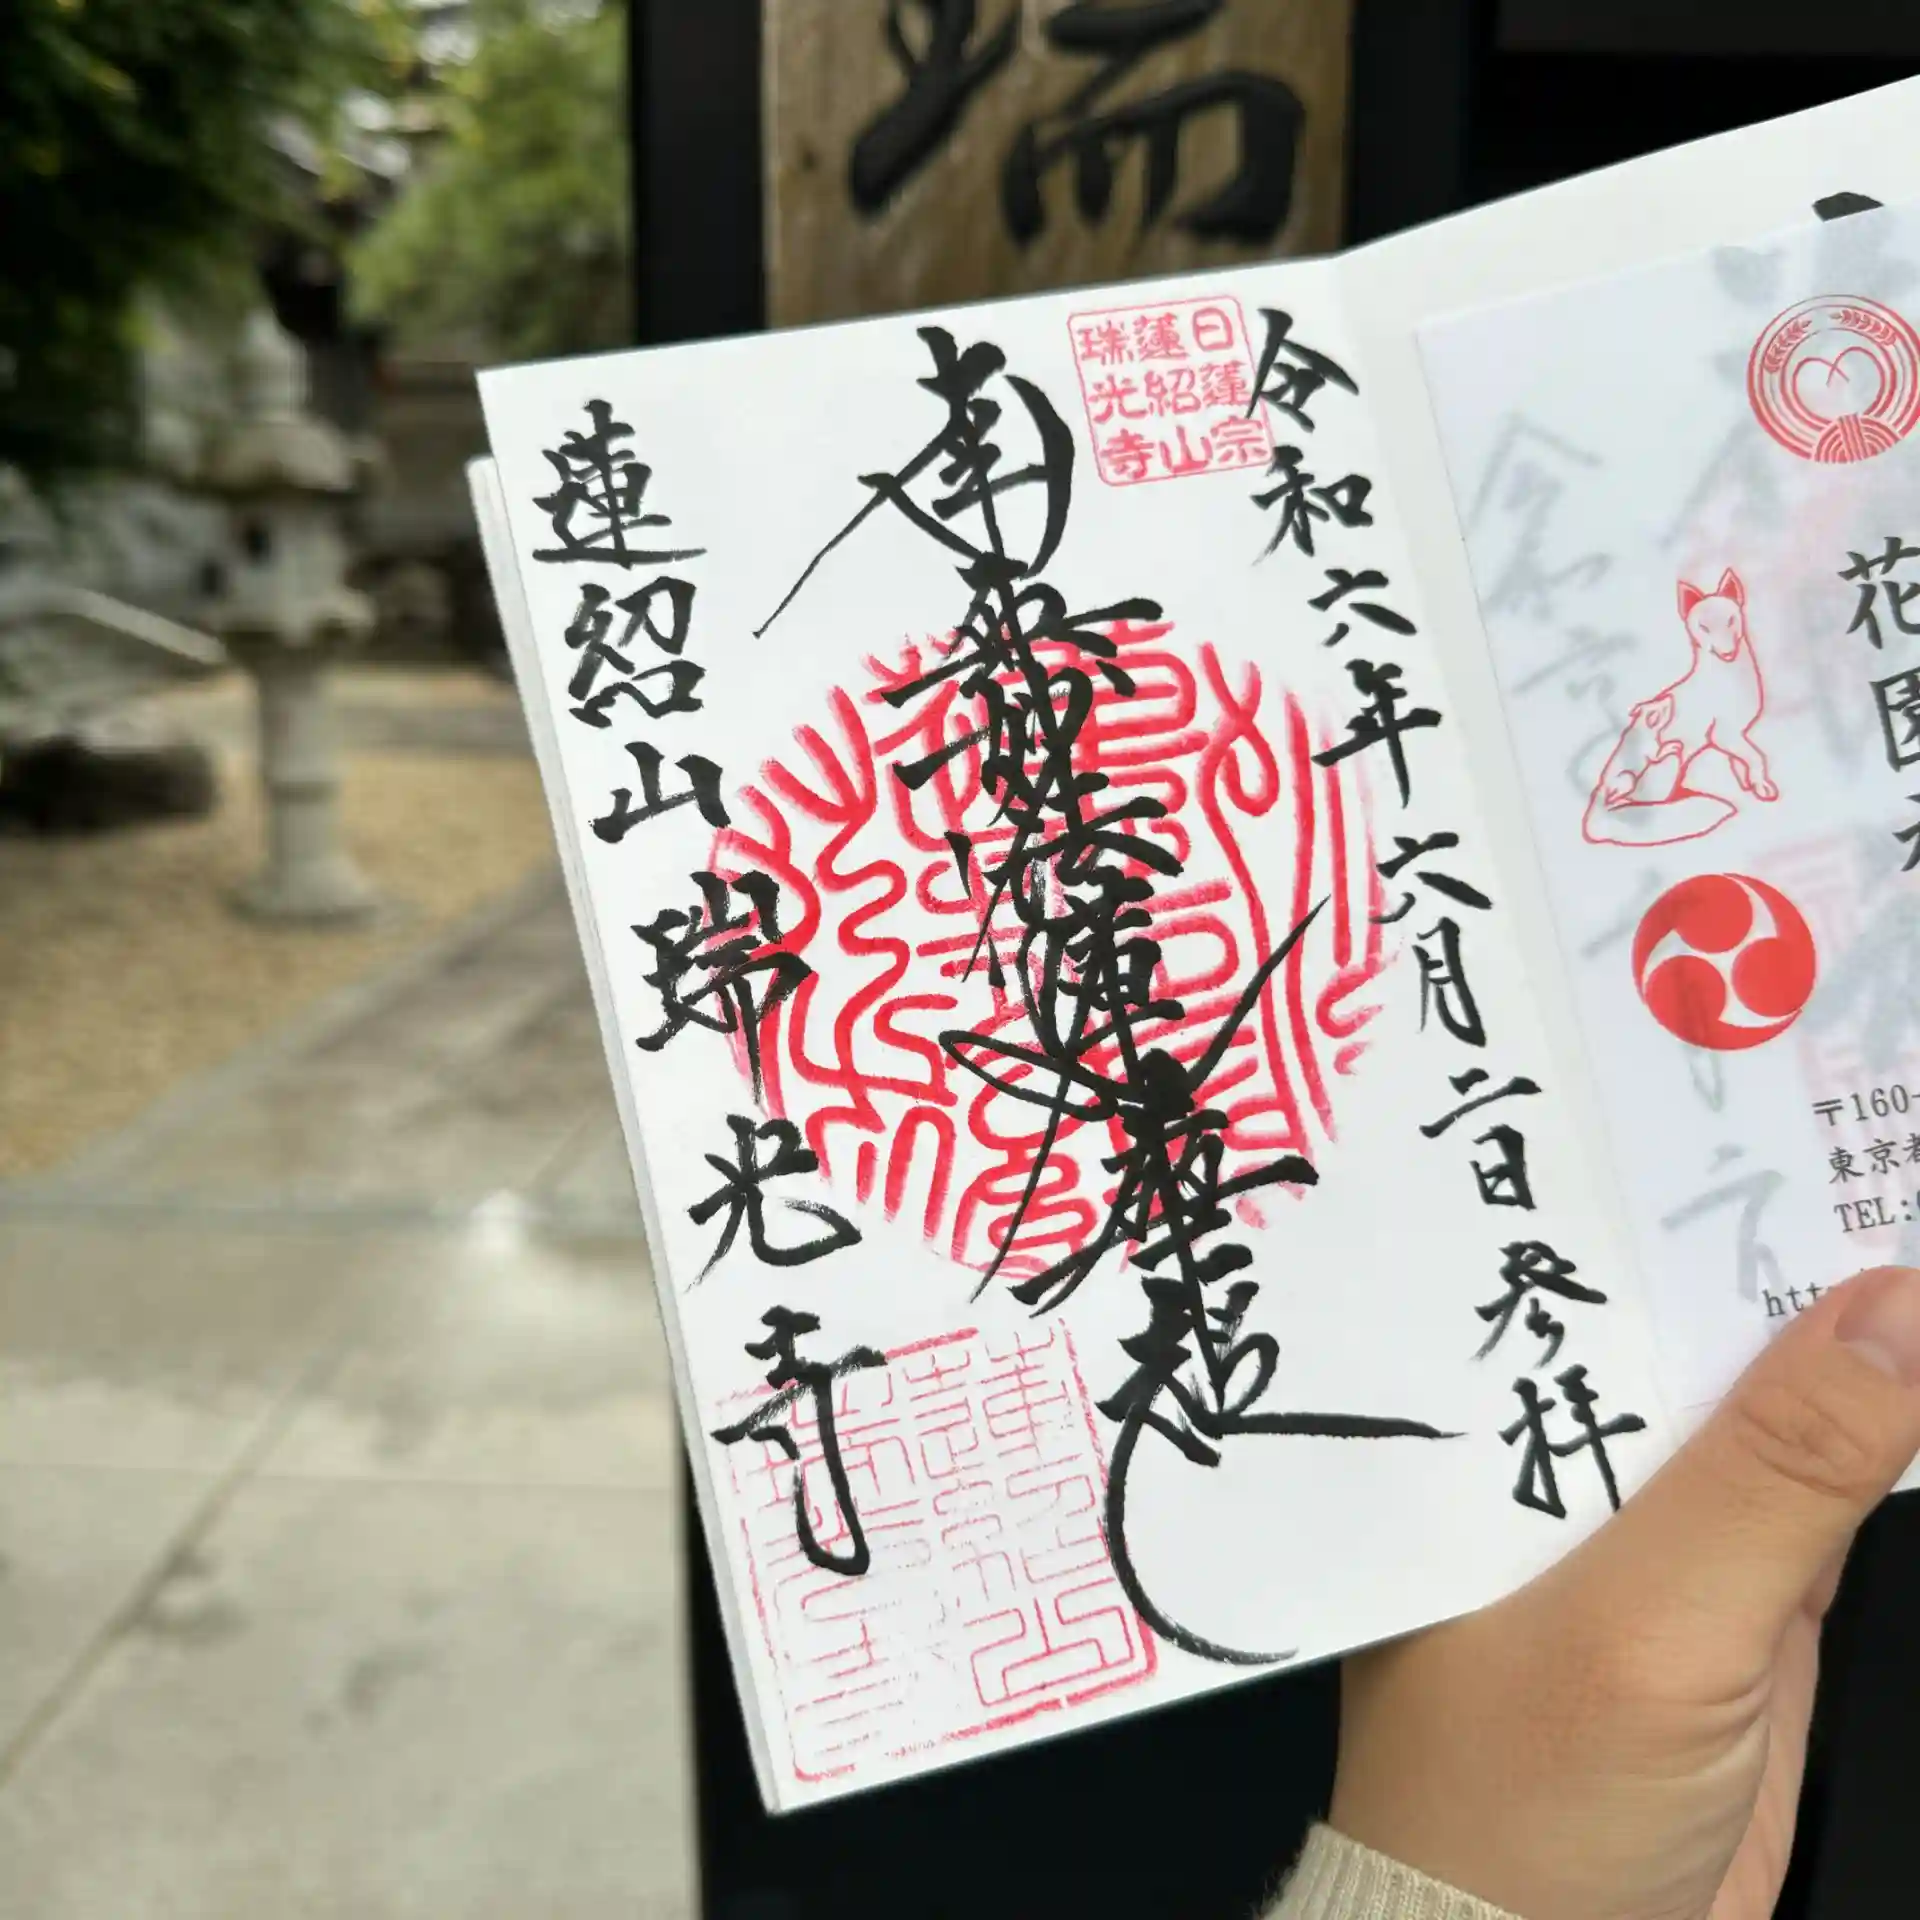 瑞
花園
〒160-
東京都
TEL:
htt
令和六年六月二日参拝
日蓮宗
蓮紹山
瑞光寺
南無妙法蓮華経
蓮紹山瑞光寺